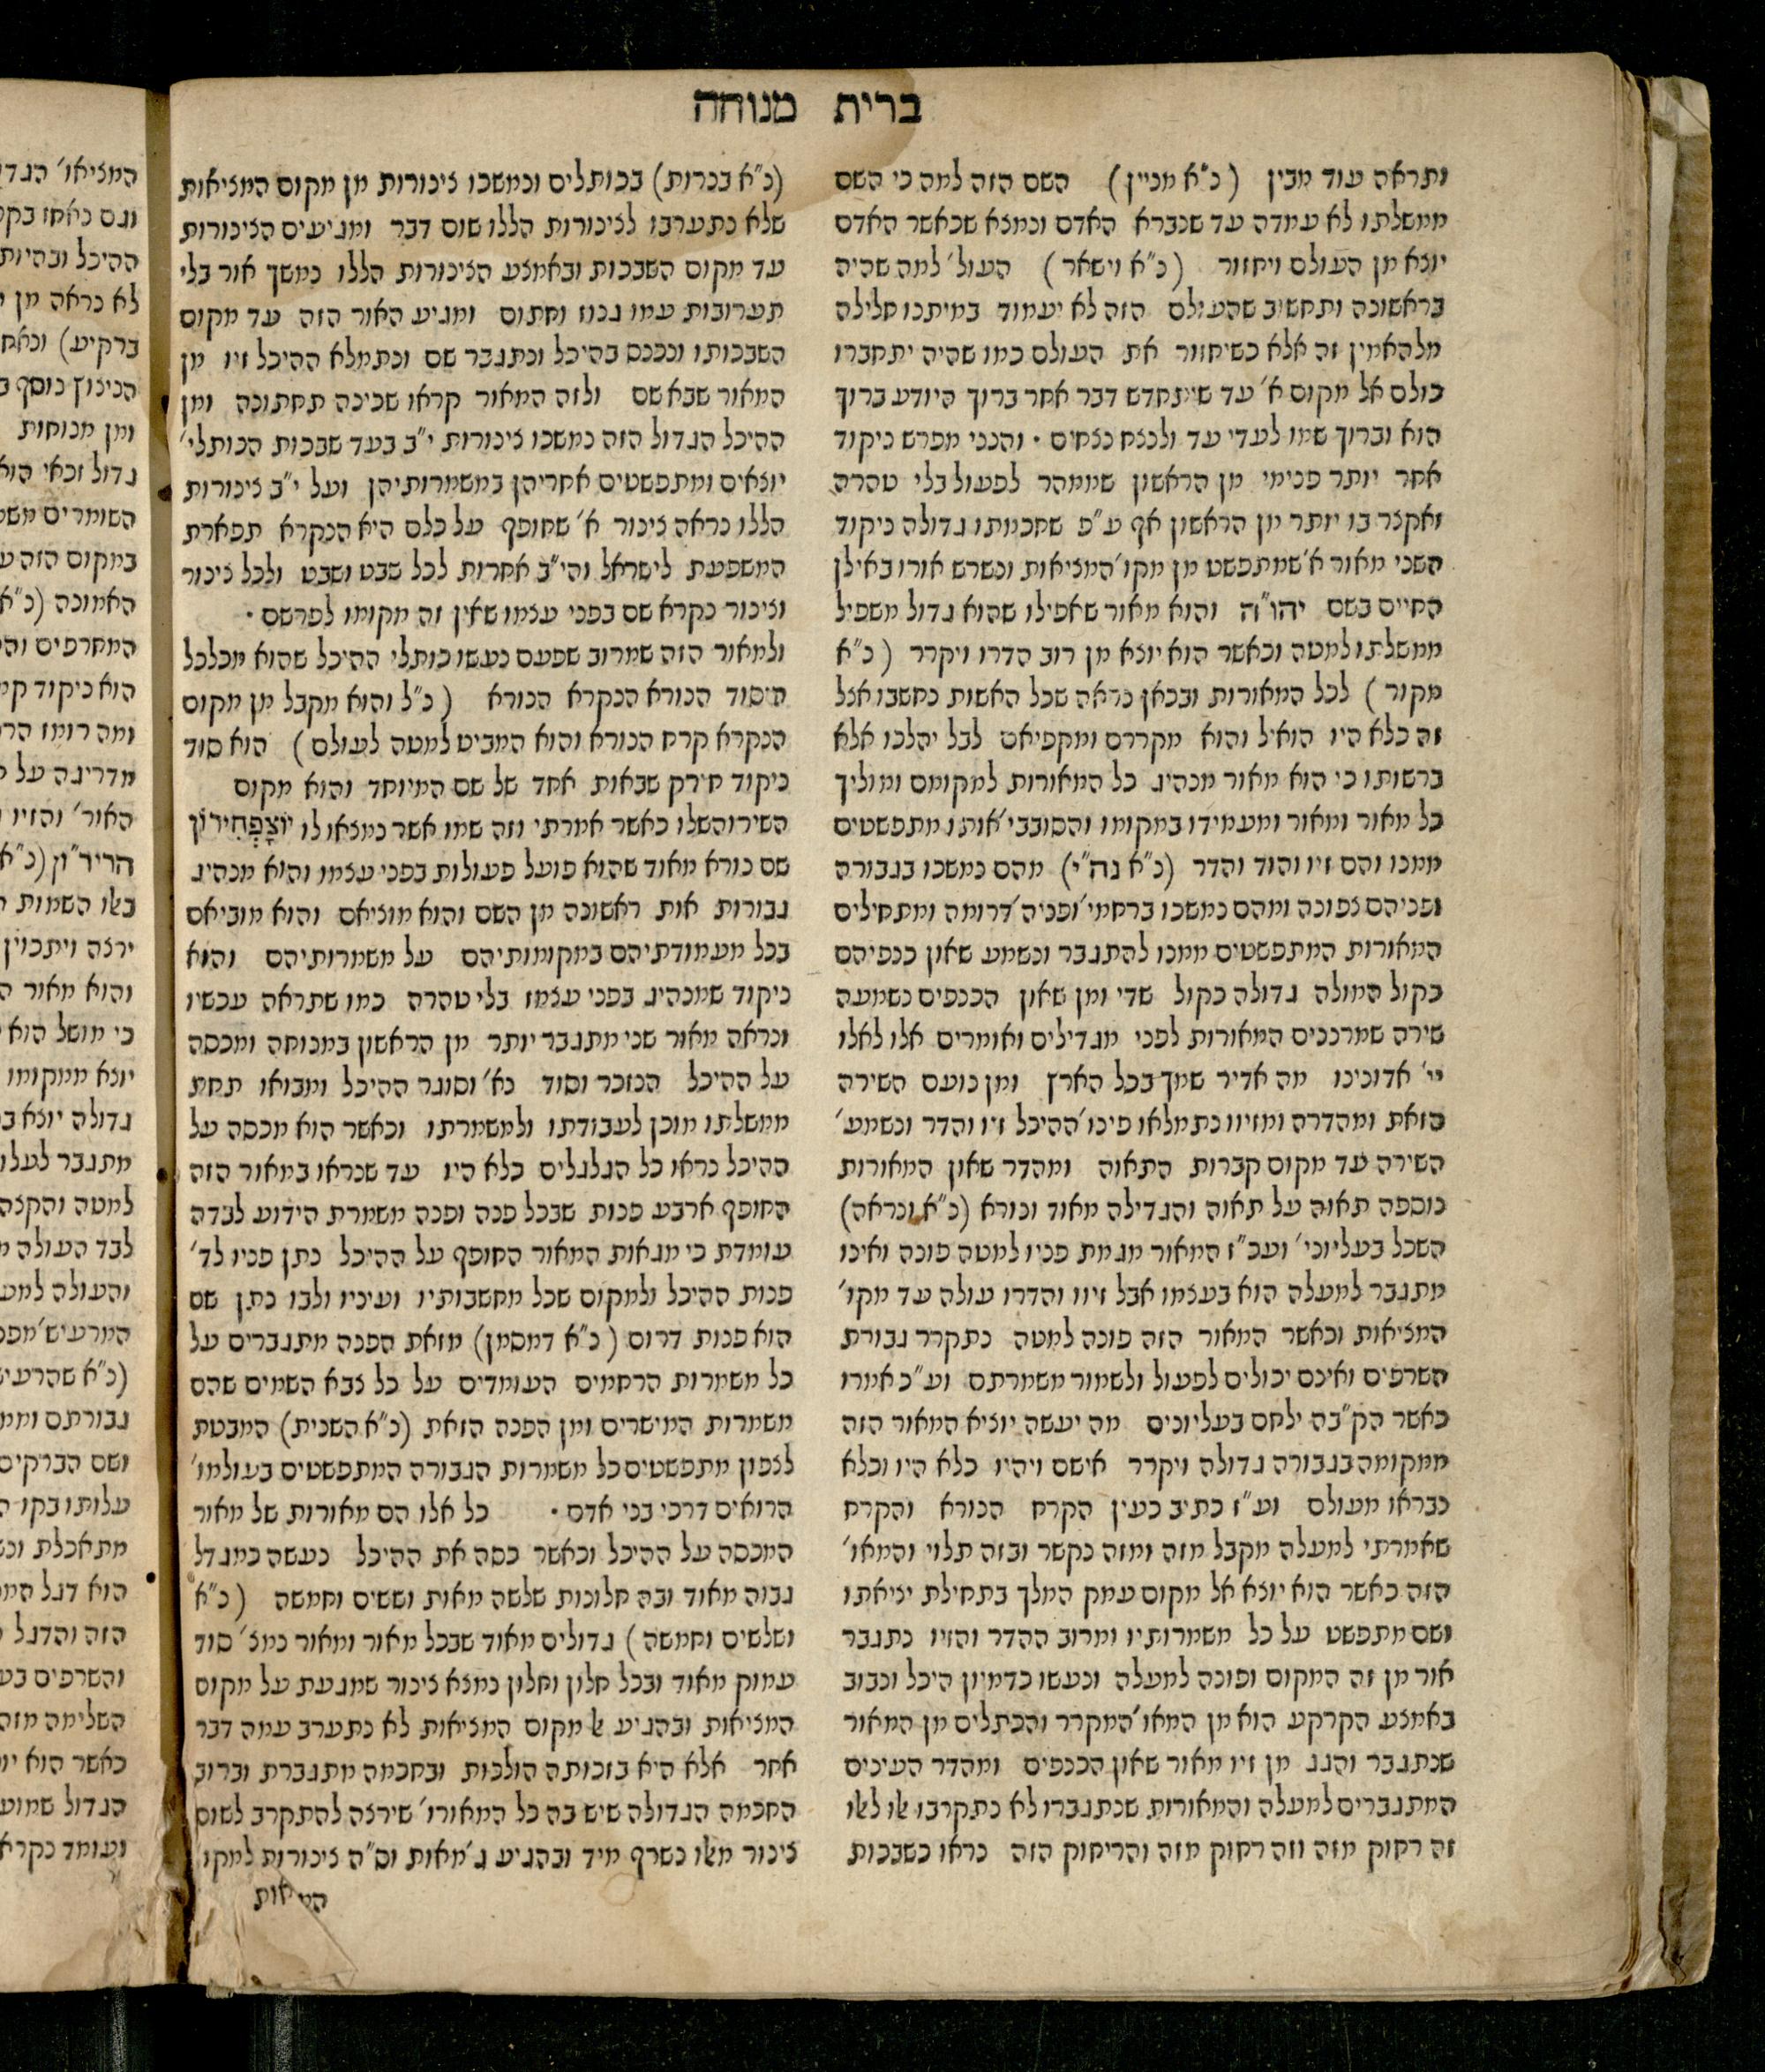 ברית מנוחה
ותראה עוד מבין (נ"א מניין) השם הזה למה כי השם
ממשלתו לא עמדה עד שנברא האדם ונמצא שכאשר האדם
יוצא מן העולם ויחזור (נ"א וישאר) העול' למה שהיה
בראשונה ותחשיב שהעולם הזה לא יעמוד במיתנו חלילה
מלהאמין זה אלא כשיחזור את העולם כמו שהיה יתחברו
כולם אל מקום א' עד שיתחדש דבר אחר ברוך היודע ברוך
הוא וברוך שמו לעדי עד ולנצח נצחים · והנני מפרש ניקוד
אחר יותר פנימי מן הראשון שממהר לפעול בלי טהרה
ואקצר בו יותר מן הראשון אף ע"פ שחכמתו גדולה ניקוד
השני מאור א' שמתפשט מן מקו' המציאות ונשרש אורו באילן
החיים בשם יהו"ה והוא מאור שאפילו שהוא גדול משפיל
ממשלתו למטה וכאשר הוא יוצא מן רוב הדרו ויקרר (נ"א
מקור) לכל המאורות ובכאן נראה שכל האשות נחשבו אצל
זה כלא היו הואיל והוא מקררם ומקפיאם לבל יהלכו אלא
ברשותו כי הוא מאור מנהיג כל המאורות למקומם ומוליך
כל מאור ומאור ומעמידו במקומו והסובבי' אותו מתפשטים
ממנו והם זיו והוד והדר (נ"א נה"י) מהם נמשכו בגבורה
ופניהם צפונה ומהם נמשכו ברחמי' ופניה' דרומה ומתחילים
המאורות המתפשטים ממנו להתגבר ונשמע שאון כנפיהם
כקול המולה גדולה כקול שדי ומן שאון הכנפים נשמעה
שירה שמרננים המאורות לפני מגדילים ואומרים אלו לאלו
יי' אדונינו מה אדיר שמך בכל הארץ ומן נועם השירה
הזאת ומהדרה ומזיוו נתמלאו פינו' ההיכל זיו והדר ונשמע'
השירה עד מקום קברות התאוה ומהדר שאון המאורות
נוספה תאוה על תאוה והגדילה מאוד ונורא (נ"א ונראה)
השכל בעליוני' ועכ"ז המאור מגמת פניו למטה פונה ואינו
מתגבר למעלה הוא בעצמו אבל זיוו והדרו עולה עד מקו'
המציאות וכאשר המאור הזה פונה למטה נתקרר גבורת
השרפים ואינם יכולים לפעול ולשמור משמרתם וע"כ אמרו
כאשר הק"בה ילחם בעליונים מה יעשה יוציא המאור הזה
ממקומה בגבורה גדולה ויקרר אישם ויהיו כלא היו וכלא
נבראו מעולם וע"ז כתיב כעין הקרח הנורא והקרח
שאמרתי למעלה מקבל מזה ומזה נקשר ובזה תלוי והמאו'
הזה כאשר הוא יוצא אל מקום עמק המלך בתחילת יציאתו
ושם מתפשט על כל משמרותיו ומרוב ההדר והזיו נתגבר
אור מן זה המקום ופונה למעלה ונעשו כדמיון היכל ונבוב
באמצע הקרקע הוא מן המאו' המקרר והכתלים מן המאור
שנתגבר והגג מן זיו מאור שאון הכנפים ומהדר העינים
המתגברים למעלה והמאורות שנתגברו לא נתקרבו אלו לאלו
זה רחוק מזה וזה רחוק מזה והריחוק הזה נראו כשבכות
(נ"א נברות) בכותלים ונמשכו צינורות מן מקום המציאות
שלא נתערבו לצינורות הללו שום דבר ומגיעים הצינורות
עד מקום השבכות ובאמצע הצינורות הללו נמשך אור בלי
תערובות עמו גנוז וחתום ומגיע האור הזה עד מקום
השבכותו ונכנס בהיכל ונתגבר שם ונתמלא ההיכל זיו מן
המאור שבא שם ולזה המאור קראו שכינה תחתונה ומן
ההיכל הגדול הזה נמשכו צינורות י"ב בעד שבכות הכותלי'
יוצאים ומתפשטים אחריהן במשמרותיהן ועל י"ב צינורות
הללו נראה צינור א' שחופף על כלם היא הנקרא תפארת
המשפעת לישראל והי"ב אחרות לכל שבט ושבט ולכל צינור
וצינור נקרא שם בפני עצמו שאין זה מקומו לפרשם ·
ולמאור הזה שמרוב שפעם נעשו כותלי ההיכל שהוא מכלכל
היסוד הנורא הנקרא הנורא (נ"ל והוא מקבל מן מקום
הנקרא קרח הנורא והוא המביט למטה לעולם) הוא סוד
ניקוד חירק שבאות אחד של שם המיוחד והוא מקום
השירוהשלו כאשר אמרתי וזה שמו אשר נמצאו לו יוצפחירון
שם נורא מאוד שהוא פועל פעולות בפני עצמו והוא מנהיג
גבורות אות ראשונה מן השם והוא מוציאם והוא מוביאם
בכל מעמודתיהם במקומותיהם על משמרותיהם והוא
ניקוד שמנהיג בפני עצמו בלי טהרה כמו שתראה עכשיו
ונראה מאור שני מתגבר יותר מן הראשון במנוחה ומכסה
על ההיכל הנזכר וסוד נא' וסוגר ההיכל ומבואו תחת
ממשלתו מוכן לעבודתו ולמשמרתו וכאשר הוא מכסה על
ההיכל נראו כל הגלגלים כלא היו עד שנראו במאור הזה
החופף ארבע פנות שבכל פנה ופנה משמרת הידוע לבדה
עומדת כי מגאות המאור החופף על ההיכל נתן פניו לד'
פנות ההיכל ולמקום שכל מחשבותיו ועיניו ולבו נתן שם
הוא פנות דרום (נ"א דמסמן) מזאת הפנה מתגברים על
כל משמרות הרחמים העומדים על כל צבא השמים שהם
משמרות המישרים ומן הפנה הזאת (נ"א השנית) המבטת
לצפון מתפשטים כל משמרות הגבורה המתפשטים בעולמו'
הרואים דרכי בני אדם · כל אלו הם מאורות של מאור
המכסה על ההיכל וכאשר כסה את ההיכל נעשה כמגדל
גבוה מאוד ובה חלונות שלשה מאות וששים וחמשה (נ"א
ושלשים וחמשה) גדולים מאוד שבכל מאור ומאור נמצ' סוד
עמוק מאוד ובכל חלון וחלון נמצא צינור שמגעת על מקום
המציאות ובהגיע אל מקום המציאות לא נתערב עמה דבר
אחר אלא היא בזכותה הולכות ובחכמה מתגברת וברוב
החכמה הגדולה שיש בה כל המאורו' שירצה להתקרב לשום
צינור מאלו נשרף מיד ובהגיע ג' מאות וס"ה צינורות למקו